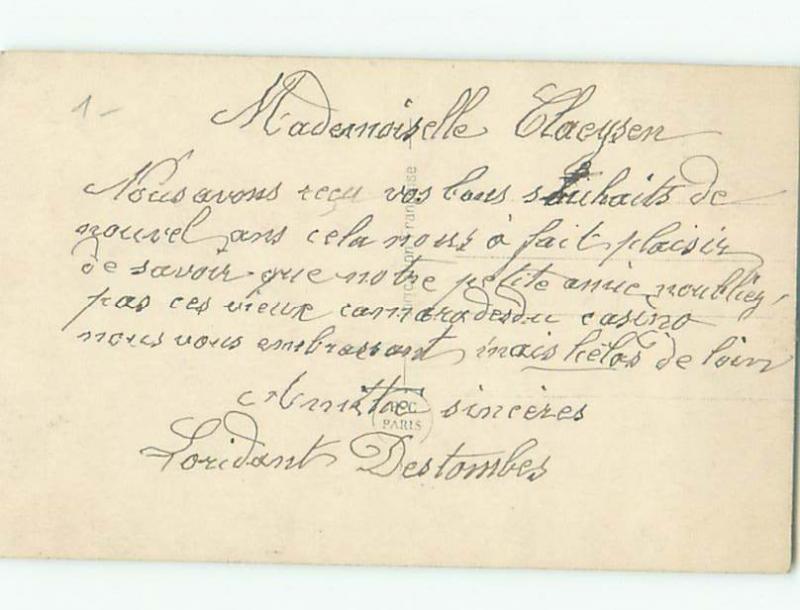 1-
Mademoiselle Claeysen
Nous avons reçu vos bons souhaits de
nouvel ans cela nous à fait plaisir
de savoir que notre petite amie noubliez
pas ces vieux camarades du casino
nous vous embrassant mais hélas de loin
Amitié sincères
PARIS
Loridant Destombes